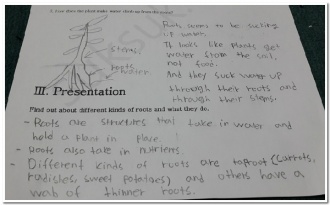 2. How does the plant make water climb up from the ground?
Roots seems to be sucking
up water.
It looks like plants get
water from the soil,
not food.
And they suck water up
through their roots and
through their stems.
Stems
roots
water
III. Presentation
Find out about different kinds of roots and what they do.
- Roots are structures that take in water and
hold a plant in place.
- Roots also take in nutrients.
- Different kinds of roots are taproot (carrots,
radishes, sweet potatoes) and others have a
web of thinner roots.